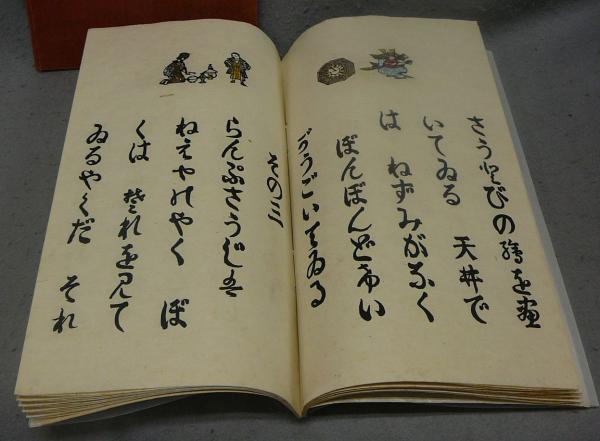 さうとびの繪を畫
いてゐる　天井で
は　ねずみがなく
ぼんぼんど希い
がうごいてゐる
その三
らんぷさうぢは
ねえやのやく　ぼ
くは　それを見て
ゐるやくだ　それ